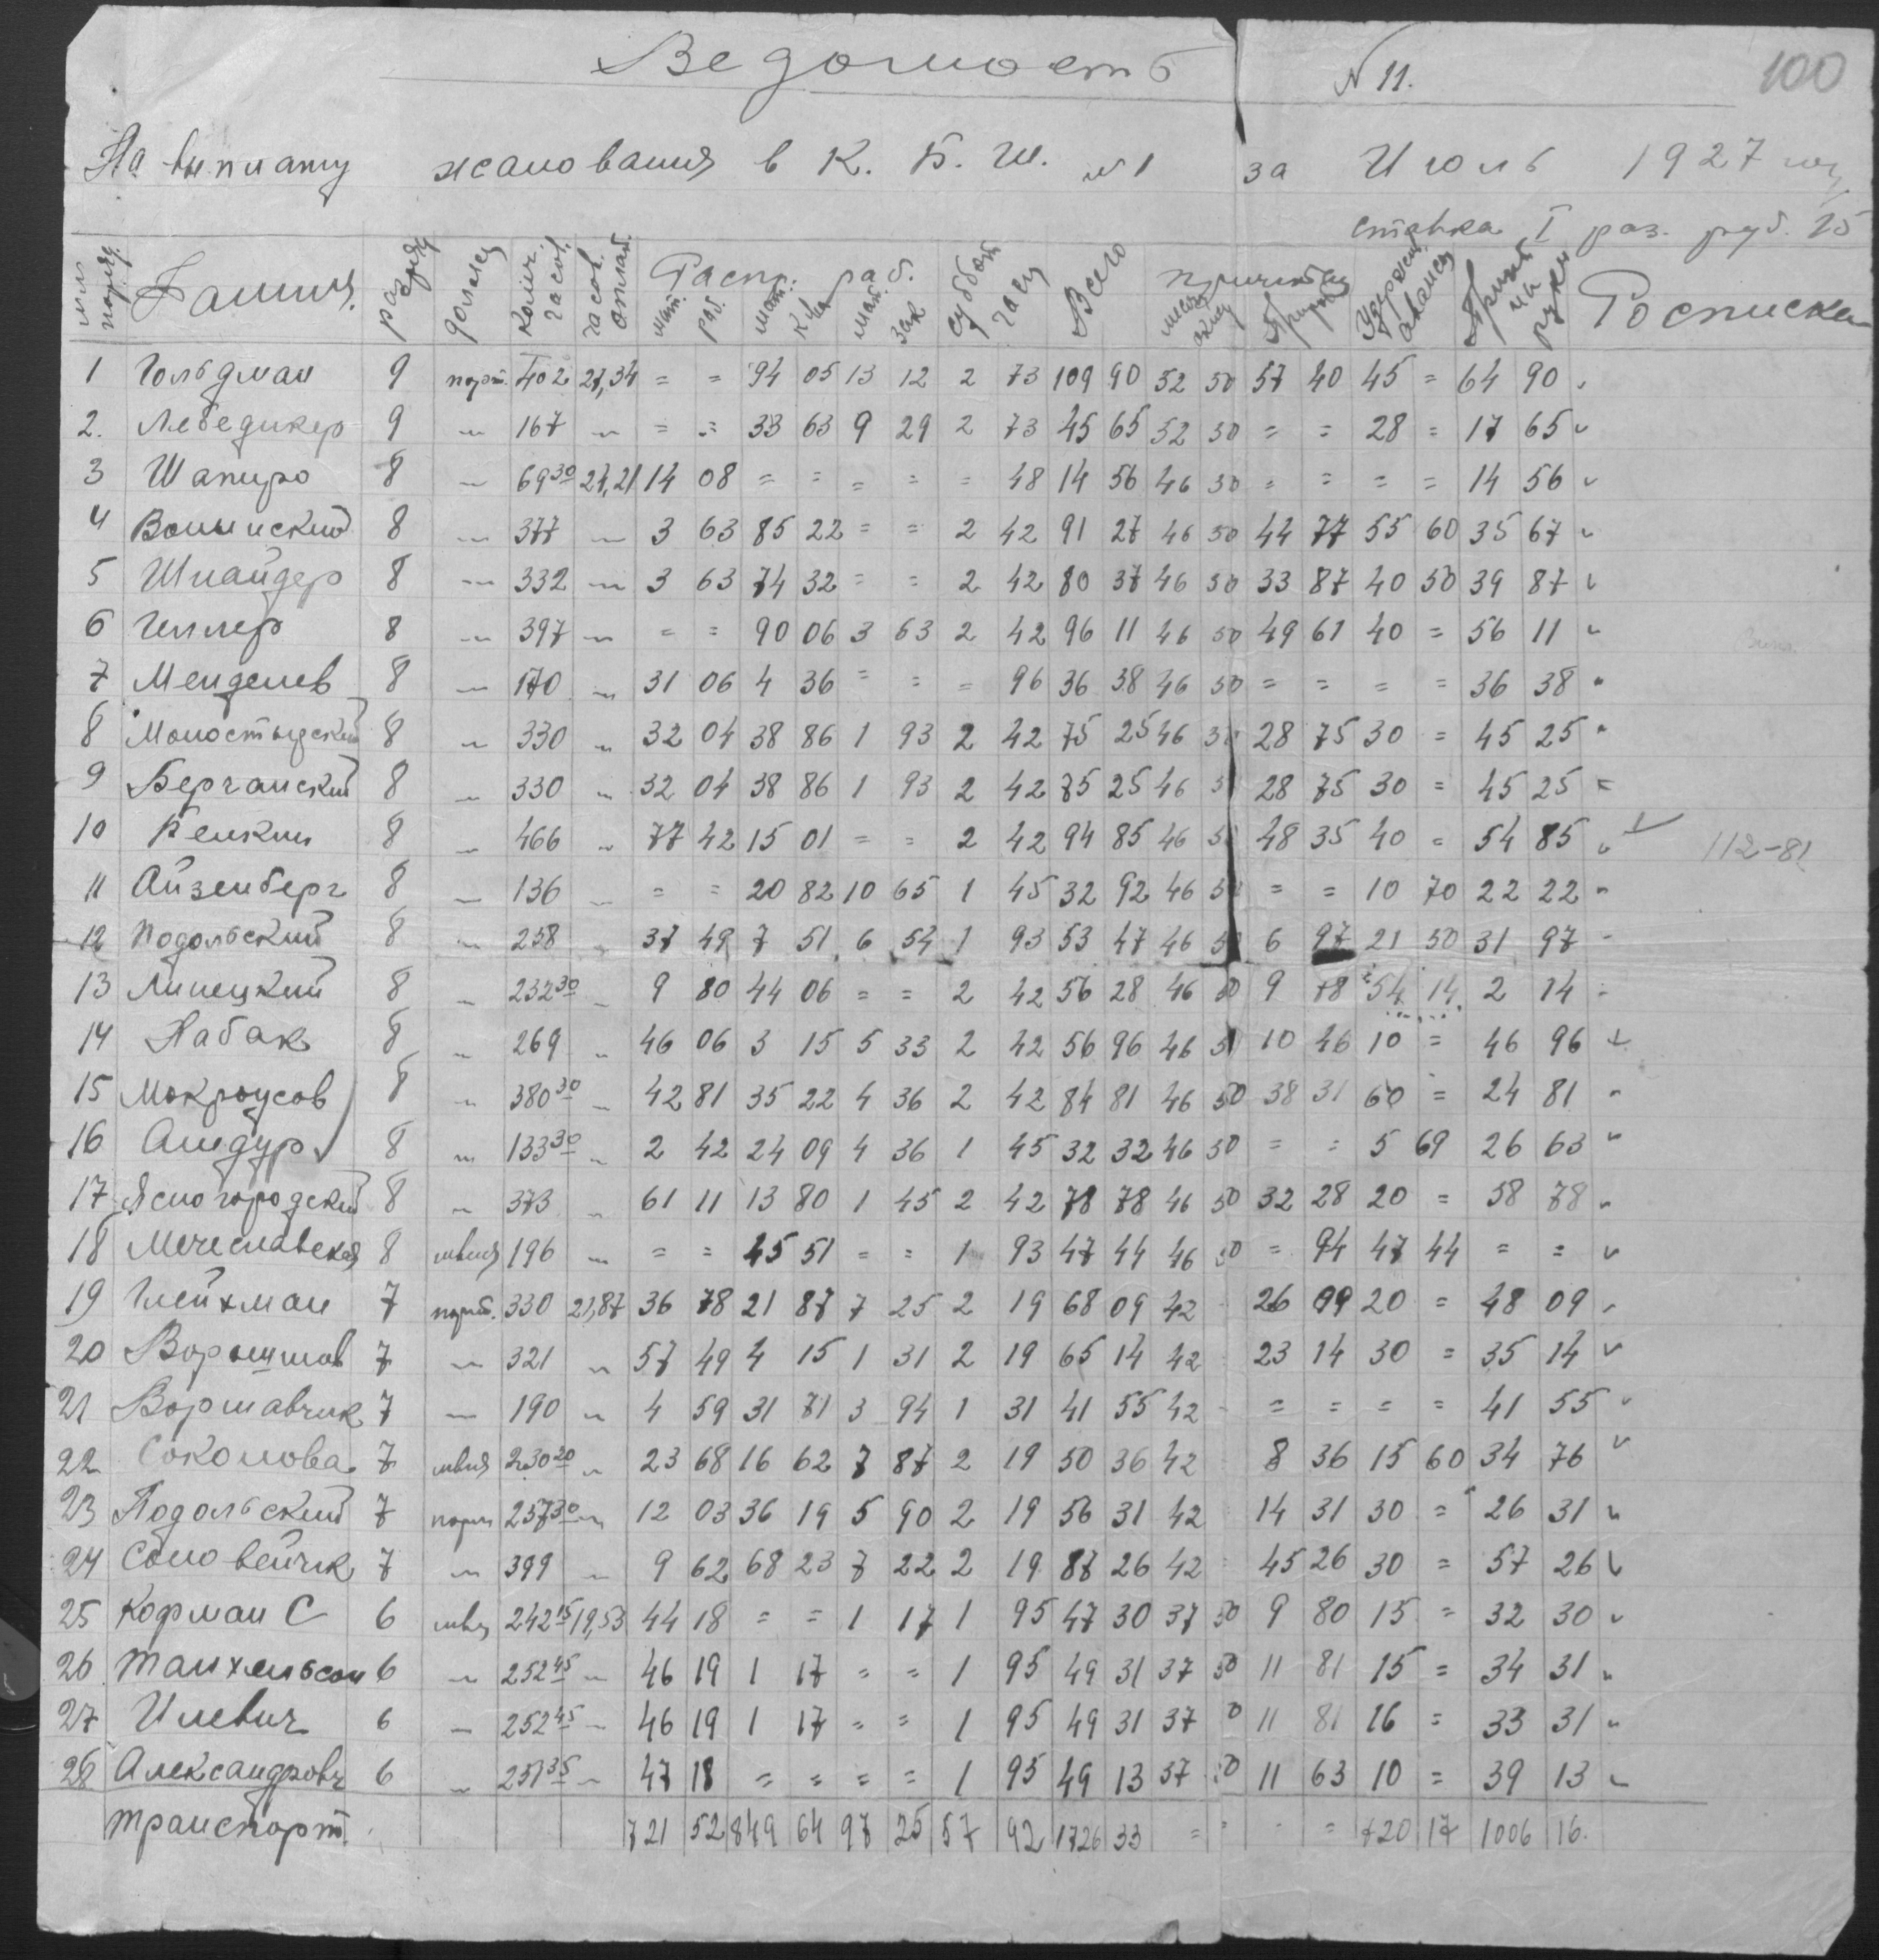 Ведомость № 11. 100
На выплату жалования в К. Б. Ш. № 1 за Июль 1927 году
ставка I раз. руб. 15
№№ поряд. Фамил. разряд должн Колич. часов. часов. оплат. Распр. раб. мат. раб. мат. мат. зак суббот часы Всего причит Удержан аванса на руки Росписка
1 Гольдман 9 норм. 402 27,34 = = 94 05 13 12 2 73 109 90 52 50 57 40 45 = 64 90
2. Лебедикер 9 " 167 " = = 33 63 9 29 2 73 45 65 52 50 = = 28 = 17 65
3 Шапиро 8 " 69 30 24,21 14 08 = = = = = 48 14 56 46 50 = = = = 14 56
4 Волынский 8 " 377 " 3 63 85 22 = = 2 42 91 27 46 50 44 77 55 60 35 67
5 Шнайдер 8 " 332 " 3 63 74 32 = = 2 42 80 37 46 50 33 87 40 50 39 87
6 Геллер 8 " 397 " = = 90 06 3 63 2 42 96 11 46 50 49 61 40 = 56 11
7 Менделев 8 " 170 " 31 06 4 36 = = = 96 36 38 46 50 = = = = 36 38
8 Моностырский 8 " 330 " 32 04 38 86 1 93 2 42 75 25 46 50 28 75 30 = 45 25
9 Берчанский 8 " 330 " 32 04 38 86 1 93 2 42 75 25 46 5 28 75 30 = 45 25
10 Белкин 8 " 466 " 77 42 15 01 = = 2 42 94 85 46 50 48 35 40 = 54 85 112-81
11 Айзенберг 8 " 136 " = = 20 82 10 65 1 45 32 92 46 50 = = 10 70 22 22
12 Подольский 8 " 258 " 37 49 7 51 6 54 1 93 53 47 46 50 6 97 21 50 31 97
13 Липецкий 8 " 232 30 " 9 80 44 06 = = 2 42 56 28 46 50 9 78 54 14 2 14
14 Набак 8 " 269 " 46 06 3 15 5 33 2 42 56 96 46 50 10 46 10 = 46 96
15 Мокроусов 8 " 380 30 " 42 81 35 22 4 36 2 42 84 81 46 50 38 31 60 = 24 81
16 Андур 8 " 133 30 " 2 42 24 09 4 36 1 45 32 32 46 50 = = 5 69 26 63
17 Ясногородский 8 " 373 " 61 11 13 80 1 45 2 42 78 78 46 50 32 28 20 = 58 78
18 Мечеславская 8 швея 196 " = = 45 51 = = 1 93 47 44 46 50 = 94 47 44 = =
19 Глейхман 7 норм. 330 21,87 36 78 21 87 7 25 2 19 68 09 42 26 99 20 = 48 09
20 Ворошилов 7 " 321 " 57 49 4 15 1 31 2 19 65 14 42 23 14 30 = 35 14
21 Воршавчик 7 " 190 " 4 59 31 71 3 94 1 31 41 55 42 = = = = 41 55
22 Соколова 7 швея 230 20 " 23 68 16 62 7 87 2 19 50 36 42 8 36 15 60 34 76
23 Подольский 7 норм 257 30 " 12 03 36 19 5 90 2 19 56 31 42 14 31 30 = 26 31
24 Соловейчик 7 " 399 " 9 62 68 23 7 22 2 19 87 26 42 45 26 30 = 57 26
25 Корман С 6 швея 242 15 19,53 44 18 = = 1 17 1 95 47 30 37 50 9 80 15 = 32 30
26 Танхельсон 6 " 252 45 " 46 19 1 17 = = 1 95 49 31 37 50 11 81 15 = 34 31
27 Илевич 6 " 252 45 " 46 19 1 17 = = 1 95 49 31 37 50 11 81 16 = 33 31
28 Александрович 6 " 251 35 " 47 18 = = = = 1 95 49 13 37 50 11 63 10 = 39 13
Транспорт. 721 52 849 64 97 25 57 92 1726 33 = = = = 720 17 1006 16.